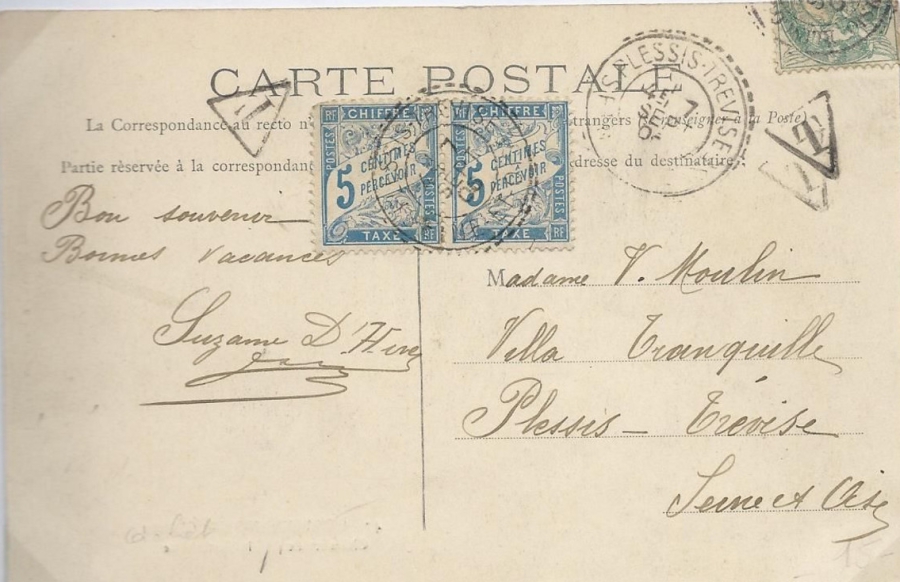 CARTE POSTALE
La Correspondance au recto n' Étrangers (se renseigner à la Poste)
Partie réservée à la correspondanc adresse du destinataire
T
T
T
PLESSIS-TREVISE
7
RF CHIFFRE
POSTES
5 CENTIMES
À
PERCEVOIR
TAXE RF
CHIFFRE RF
5 CENTIMES
À
PERCEVOIR
POSTES
TAXE RF
Bon souvenir
Bonnes Vacances
Suzanne D'
Madame V. Moulin
Villa Tranquille
Plessis - Trévise
Seine et Oise